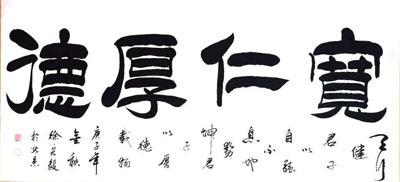 寬仁厚德
天行
健
君子
以
自強
不
息地
勢
坤君
子
以厚
德
載物
庚子年
金秋
徐
於北京